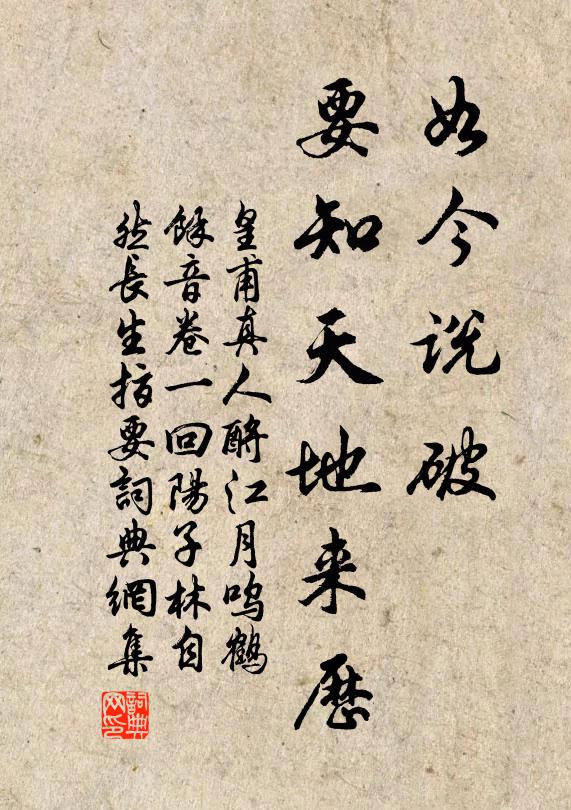 如今说破
要知天地来歷
皇甫真人酹江月鸣鶴
餘音卷一回陽子林自
然長生指要詞典網集
詞典
网印